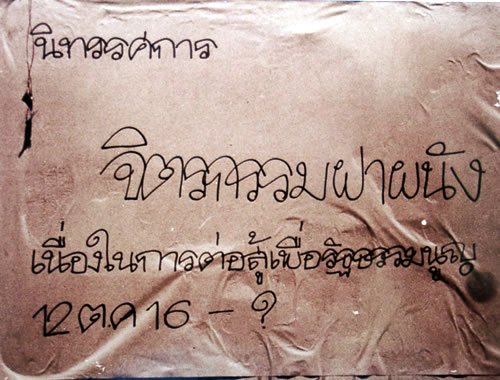 นิทรรศการ
จิตรกรรมฝาผนัง
เนื่องในการต่อสู้เพื่อรัฐธรรมนูญ
12 ต.ค 16 - ?